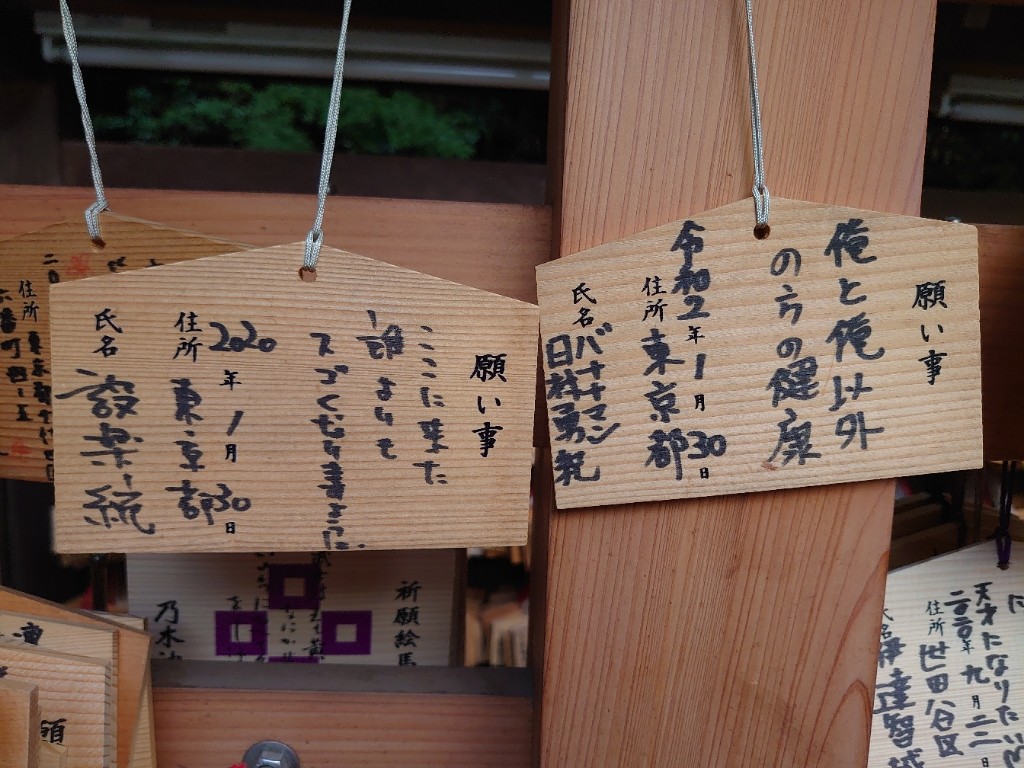 願い事
俺と俺以外
の方の健康
令和2年1月30日
住所 東京都
氏名 バナナマン
日村勇紀
願い事
ここに来た
誰よりも
スゴくなりますように。
2020年1月30日
住所 東京都
氏名 設楽統
住所 東京都千代田区
六番町四-五
祈願絵馬
乃木
天才になりたい
二〇二〇年九月二二日
住所 世田谷区
氏名 伊達智
願